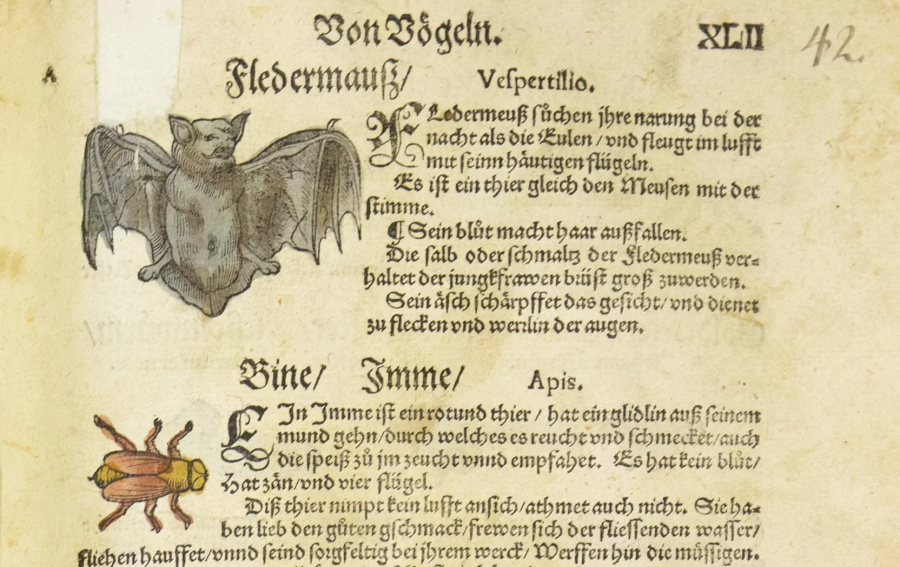 Von Vögeln. XLII 42.
A
Fledermauß/ Vespertilio.
FLedermeuß sůchen jhre narung bei der
nacht als die Eulen / vnd fleugt im lufft
mit seinn häutigen flügeln.
Es ist ein thier gleich den Meusen mit der
stimme.
¶ Sein blůt macht haar außfallen.
Die salb oder schmaltz der Fledermeuß ver-
haltet der jungkfrawen brüst groß zuwerden.
Sein äsch schärpffet das gesicht/ vnd dienet
zu flecken vnd werzlin der augen.
Bine/ Imme/ Apis.
EIn Imme ist ein rotund thier / hat ein glidlin auß seinem
mund gehn/durch welches es reucht vnd schmecket/auch
die speiß zů jm zeucht vnnd empfahet. Es hat kein blůt/
hat zän/vnd vier flügel.
Diß thier nimpt kein lufft an sich/athmet auch nicht. Sie ha-
ben lieb den gůten gschmack/frewen sich der fliessenden wasser/
fliehen hauffet/vnnd seind sorgfeltig bei jhrem werck/ Werffen hin die müssigen.